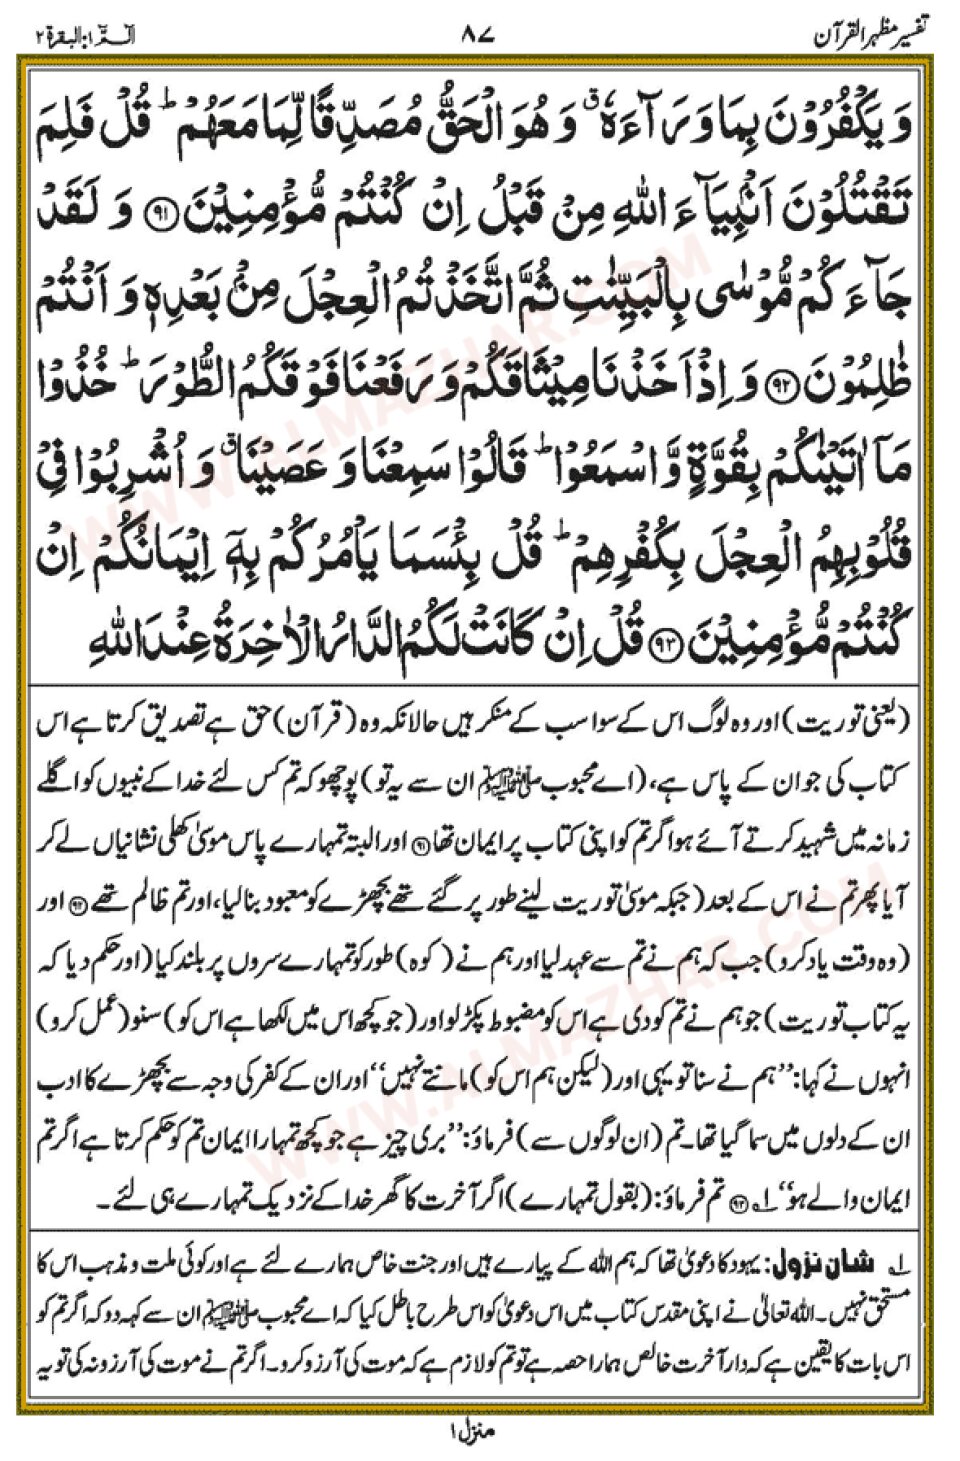 تفسیر مظہر القرآن
۸۷
الٓمّٓ ۱: البقرة ۲
وَ یَكْفُرُوْنَ بِمَا وَرَآءَهٗ ۗ وَ هُوَ الْحَقُّ مُصَدِّقًا لِّمَا مَعَهُمْ ؕ قُلْ فَلِمَ
تَقْتُلُوْنَ اَنْۢبِیَآءَ اللّٰهِ مِنْ قَبْلُ اِنْ كُنْتُمْ مُّؤْمِنِیْنَ ﴿۹۱﴾ وَ لَقَدْ
جَآءَ كُمْ مُّوْسٰی بِالْبَیِّنٰتِ ثُمَّ اتَّخَذْتُمُ الْعِجْلَ مِنْۢ بَعْدِهٖ وَ اَنْتُمْ
ظٰلِمُوْنَ ﴿۹۲﴾ وَ اِذْ اَخَذْنَا مِیْثَاقَكُمْ وَ رَفَعْنَا فَوْقَكُمُ الطُّوْرَ ؕ خُذُوْا
مَاۤ اٰتَیْنٰكُمْ بِقُوَّةٍ وَّ اسْمَعُوْا ؕ قَالُوْا سَمِعْنَا وَ عَصَیْنَا ۗ وَ اُشْرِبُوْا فِیْ
قُلُوْبِهِمُ الْعِجْلَ بِكُفْرِهِمْ ؕ قُلْ بِئْسَمَا یَاْمُرُكُمْ بِهٖۤ اِیْمَانُكُمْ اِنْ
كُنْتُمْ مُّؤْمِنِیْنَ ﴿۹۳﴾ قُلْ اِنْ كَانَتْ لَكُمُ الدَّارُ الْاٰخِرَةُ عِنْدَ اللّٰهِ
(یعنی توریت) اور وہ لوگ اس کے سوا سب کے منکر ہیں حالانکہ وہ (قرآن) حق ہے تصدیق کرتا ہے اس
کتاب کی جو ان کے پاس ہے، (اے محبوب ﷺ ان سے یہ تو) پوچھو کہ تم کس لئے خدا کے نبیوں کو اگلے
زمانہ میں شہید کرتے آئے ہو اگر تم کو اپنی کتاب پر ایمان تھا ﴿۹۱﴾ اور البتہ تمہارے پاس موسیٰ کھلی نشانیاں لے کر
آیا پھر تم نے اس کے بعد (جبکہ موسیٰ توریت لینے طور پر گئے تھے بچھڑے کو معبود بنا لیا، اور تم ظالم تھے ﴿۹۲﴾ اور
(وہ وقت یاد کرو) جب کہ ہم نے تم سے عہد لیا اور ہم نے (کوہ) طور کو تمہارے سروں پر بلند کیا (اور حکم دیا کہ
یہ کتاب توریت) جو ہم نے تم کو دی ہے اس کو مضبوط پکڑ لو اور (جو کچھ اس میں لکھا ہے اس کو) سنو (عمل کرو)
انہوں نے کہا: ’’ہم نے سنا تو یہی اور (لیکن ہم اس کو) مانتے نہیں‘‘ اور ان کے کفر کی وجہ سے بچھڑے کا ادب
ان کے دلوں میں سما گیا تھا۔ تم (ان لوگوں سے) فرماؤ: ’’بری چیز ہے جو کچھ تمہارا ایمان تم کو حکم کرتا ہے اگر تم
ایمان والے ہو‘‘ ۱؎ ﴿۹۳﴾ تم فرماؤ: (بقول تمہارے) اگر آخرت کا گھر خدا کے نزدیک تمہارے ہی لئے۔
۱؎ شان نزول: یہود کا دعویٰ تھا کہ ہم اللہ کے پیارے ہیں اور جنت خاص ہمارے لئے ہے اور کوئی ملت و مذہب اس کا
مستحق نہیں۔ اللہ تعالیٰ نے اپنی مقدس کتاب میں اس دعویٰ کو اس طرح باطل کیا کہ اے محبوب ﷺ ان سے کہہ دو کہ اگر تم کو
اس بات کا یقین ہے کہ دار آخرت خالص ہمارا حصہ ہے تو تم کو لازم ہے کہ موت کی آرزو کرو۔ اگر تم نے موت کی آرزو نہ کی تو یہ
منزل ۱
WWW.ALMAZHAR.COM
WWW.ALMAZHAR.COM